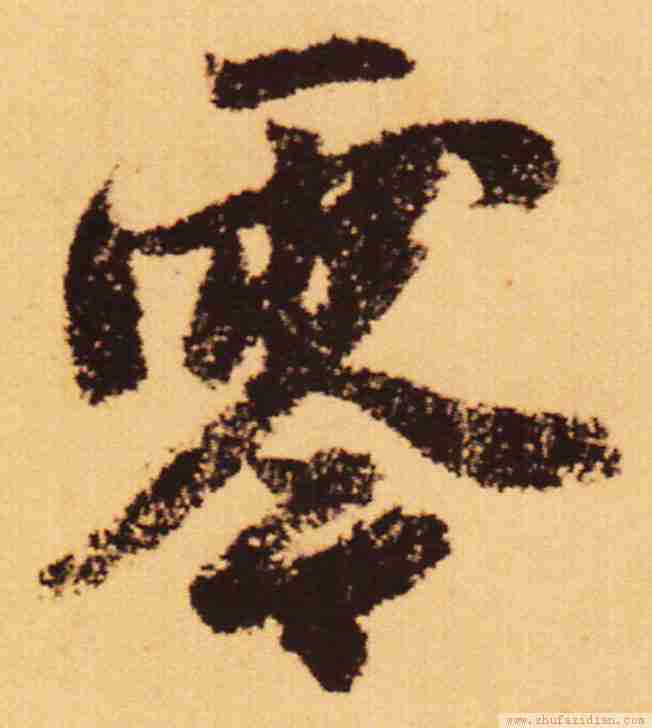 零
www.shufazidian.com